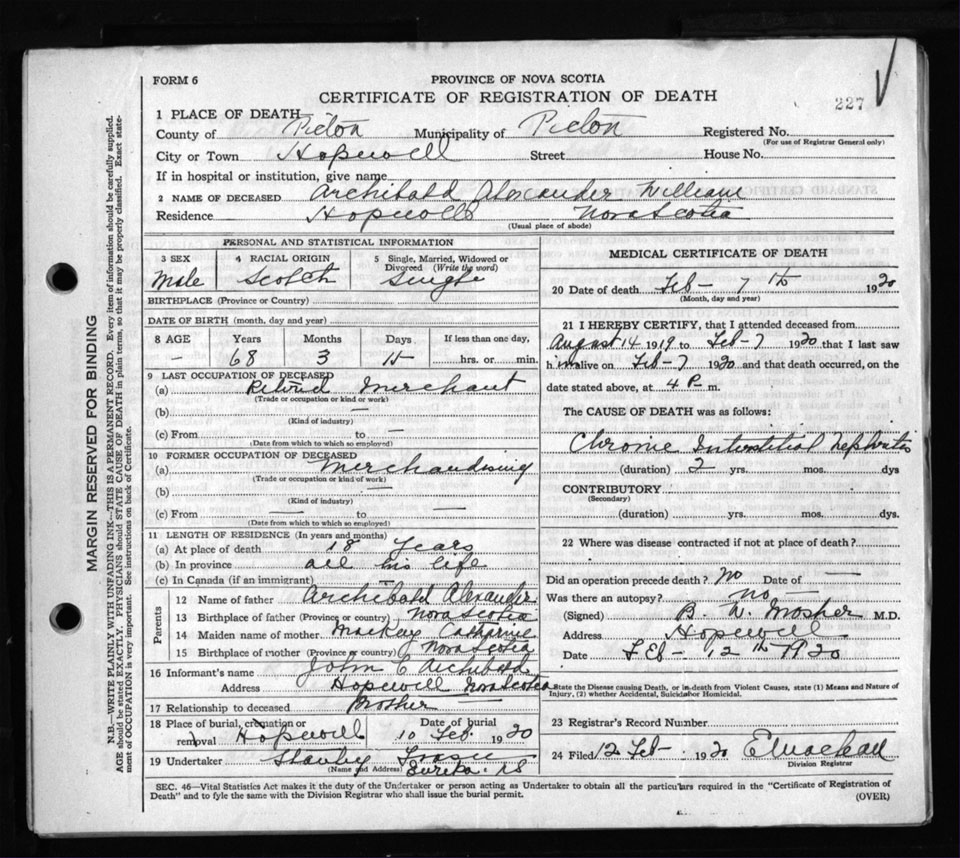 FORM 6
PROVINCE OF NOVA SCOTIA
CERTIFICATE OF REGISTRATION OF DEATH
227
1 PLACE OF DEATH
County of Pictou Municipality of Pictou Registered No.
(For use of Registrar General only)
City or Town Hopewell Street House No.
If in hospital or institution, give name
2 NAME OF DECEASED Archibald Alexander William
Residence Hopewell Nova Scotia
(Usual place of abode)
PERSONAL AND STATISTICAL INFORMATION
3 SEX 4 RACIAL ORIGIN 5 Single, Married, Widowed or Divorced (Write the word)
Male Scotch Single
BIRTHPLACE (Province or Country)
DATE OF BIRTH (month, day and year)
8 AGE Years Months Days If less than one day,
– 68 3 hrs. or min.
9 LAST OCCUPATION OF DECEASED
(a) Retired Merchant
(Trade or occupation or kind or work)
(b) —
(Kind of industry)
(c) From to —
(Date from which to which so employed)
10 FORMER OCCUPATION OF DECEASED
(a) Merchandising
(Trade or occupation or kind of work)
(b) —
(Kind of industry)
(c) From — to —
(Date from which to which so employed)
11 LENGTH OF RESIDENCE (In years and months)
(a) At place of death 18 years
(b) In province all his life
(c) In Canada (if an immigrant)
Parents
12 Name of father Archibald Alexander
13 Birthplace of father (Province or country) Nova Scotia
14 Maiden name of mother MacKay Catharine
15 Birthplace of mother (Province or country) Nova Scotia
16 Informant's name John C Archibald
Address Hopewell Nova Scotia
17 Relationship to deceased Brother —
18 Place of burial, cremation or removal Hopewell Date of burial 10 Feb. 1920
19 Undertaker Stanley
(Name and Address) Eureka. NS
MEDICAL CERTIFICATE OF DEATH
20 Date of death Feb – 7 th 1920
(Month, day and year)
21 I HEREBY CERTIFY, that I attended deceased from
August 14 1919 to Feb – 7 1920 that I last saw
him alive on Feb – 7 1920 and that death occurred, on the
date stated above, at 4 P. m.
The CAUSE OF DEATH was as follows:
Chronic Interstitial Nephritis
(duration) 2 yrs. mos. dys
CONTRIBUTORY
(Secondary)
(duration) yrs. mos. dys.
22 Where was disease contracted if not at place of death?
Did an operation precede death? No Date of —
Was there an autopsy? no —
(Signed) B. W. Mosher M.D.
Address Hopewell
Date Feb – 12 th 1920
State the Disease causing Death, or in death from Violent Causes, state (1) Means and Nature of Injury, (2) whether Accidental, Suicidal or Homicidal.
23 Registrar's Record Number
24 Filed 12 Feb – 1920
Division Registrar
SEC. 46—Vital Statistics Act makes it the duty of the Undertaker or person acting as Undertaker to obtain all the particulars required in the "Certificate of Registration of
Death" and to fyle the same with the Division Registrar who shall issue the burial permit.
(OVER)
MARGIN RESERVED FOR BINDING
N.B.—WRITE PLAINLY WITH UNFADING INK—THIS IS A PERMANENT RECORD. Every item of information should be carefully supplied.
AGE should be stated EXACTLY. PHYSICIANS should STATE CAUSE OF DEATH in plain terms, so that it may be properly classified. Exact statement
of OCCUPATION is very important. See instructions on back of Certificate.